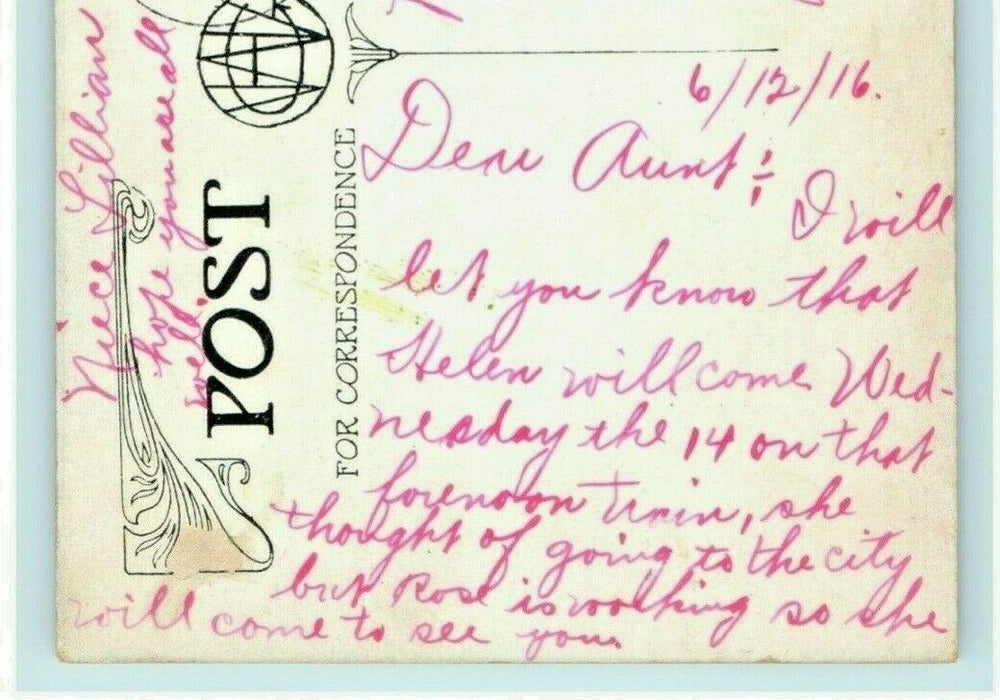 6/12/16.
Dear Aunt:
I will
let you know that
Helen will come Wed-
nesday the 14 on that
forenoon train, she
thought of going to the city
but Rose is working so she
will come to see you.
Niece Lillian
hope you are all
well.
POST
FOR CORRESPONDENCE